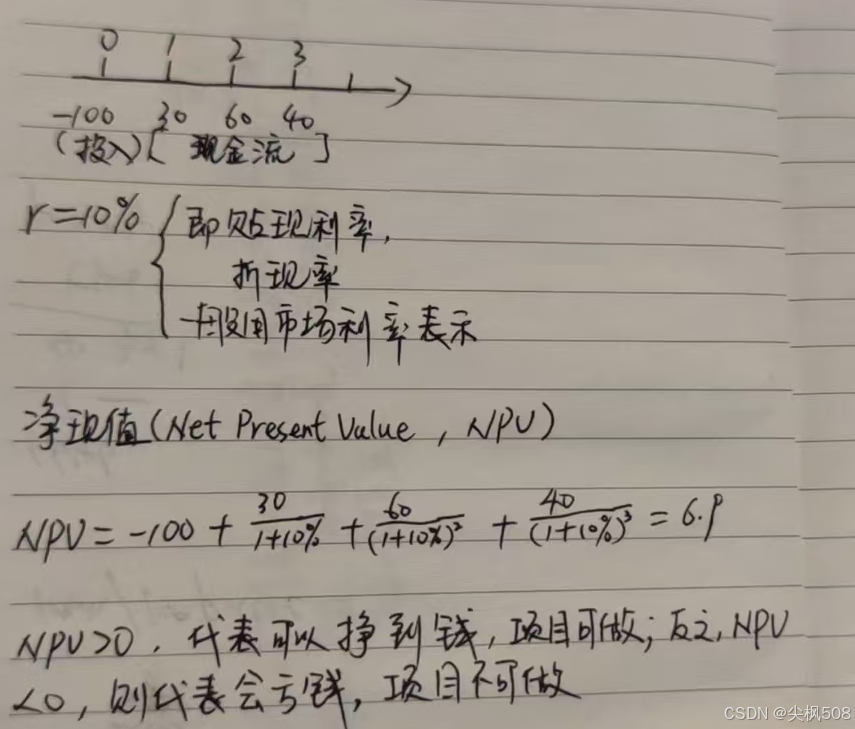 0 1 2 3
-100 30 60 40
(投入)[ 现金流 ]
r=10% { 即贴现利率,
折现率
一般用市场利率表示
净现值(Net Present Value , NPV)
NPV = -100 + 30/(1+10%) + 60/(1+10%)² + 40/(1+10%)³ = 6.9
NPV>0, 代表可以挣到钱, 项目可做; 反之, NPV
<0, 则代表会亏钱, 项目不可做
CSDN @尖枫508